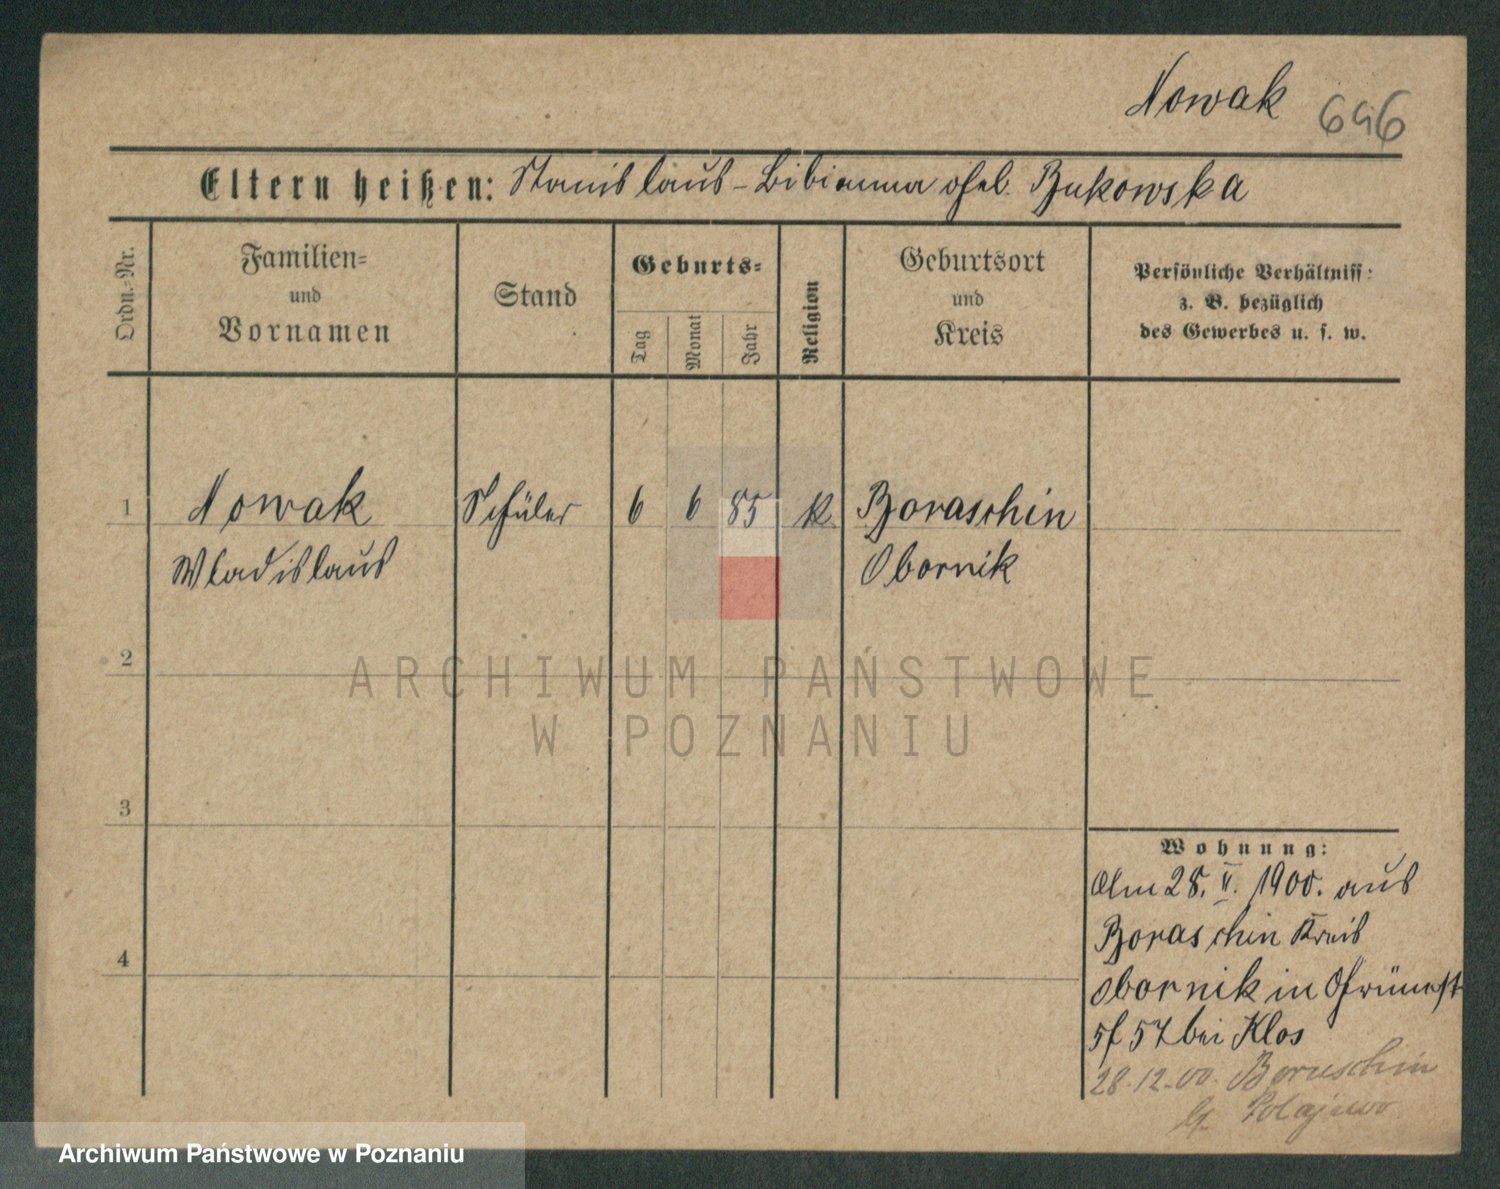 Nowak 646
Eltern heißen: Stanislaus - Bibianna geb. Bukowska
Ordn.-Nr.
Familien-
und
Vornamen
Stand
Geburts-
Tag
Monat
Jahr
Religion
Geburtsort
und
Kreis
Persönliche Verhältniss:
z. B. bezüglich
des Gewerbes u. s. w.
1 Nowak Schüler 6 6 85 K Boraschin
Wladislaus Obornik
2
ARCHIWUM PAŃSTWOWE
W POZNANIU
3
4
Wohnung:
Am 28. II. 1900. aus
Boraschin Kreis
Obornik in Grünest
57 bei Klos
28.12.00. Boruschin
Polajewo
Archiwum Państwowe w Poznaniu